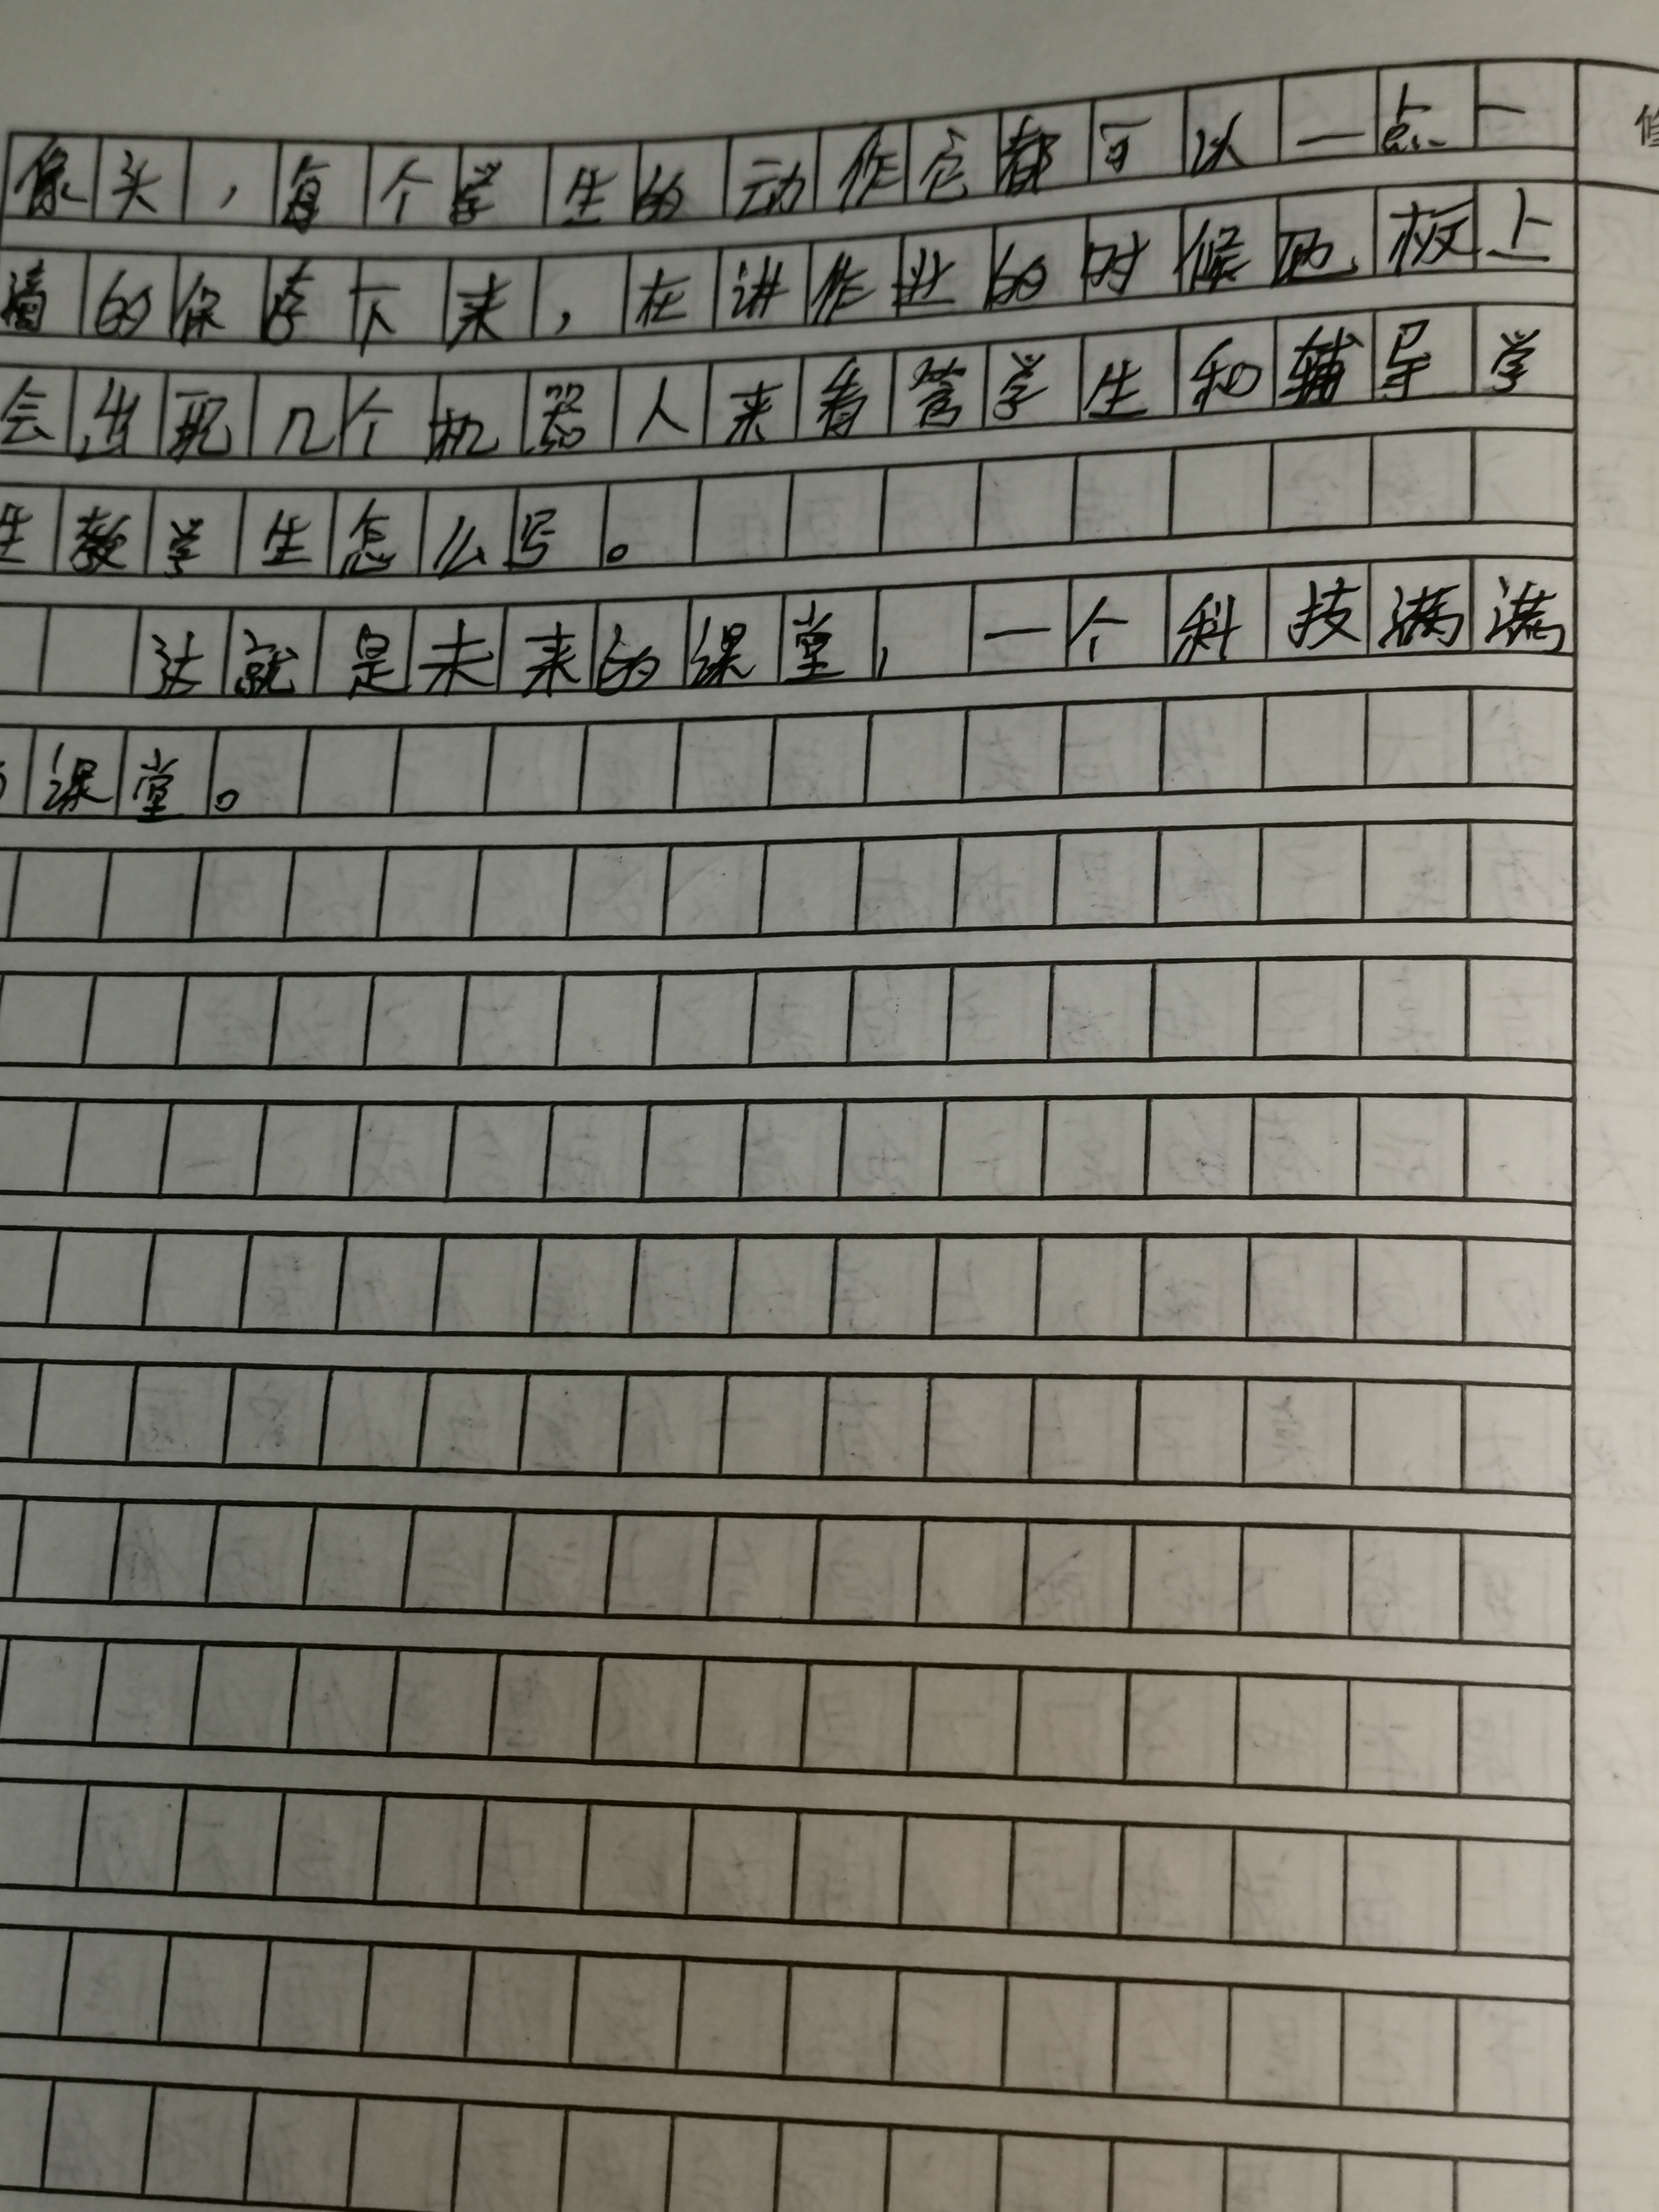 像头，每个学生的动作它都可以一点一
滴的保存下来，在讲作业的时候黑板上
会出现几个机器人来看管学生和辅导学
生教学生怎么写。
这就是未来的课堂，一个科技满满
的课堂。